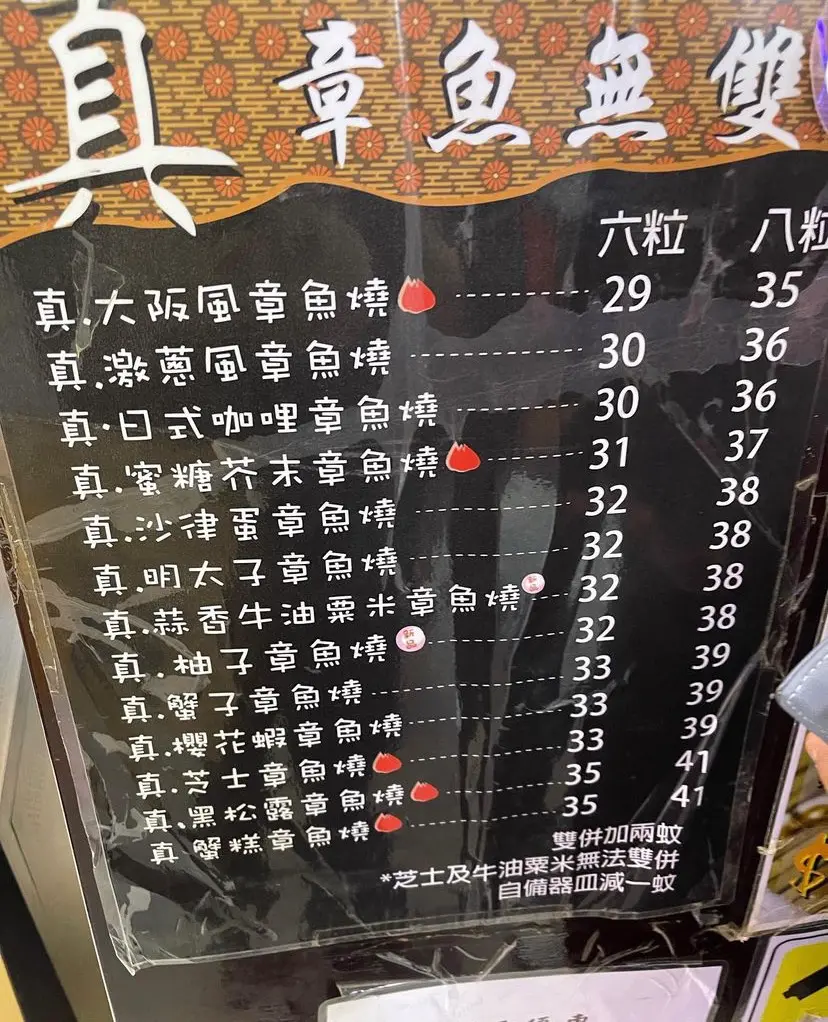 真 章魚無雙
六粒 八粒
真.大阪風章魚燒 29 35
真.激蔥風章魚燒 30 36
真.日式咖哩章魚燒 30 36
真.蜜糖芥末章魚燒 31 37
真.沙律蛋章魚燒 32 38
真.明太子章魚燒 32 38
真.蒜香牛油粟米章魚燒 新品 32 38
真.柚子章魚燒 新品 32 38
真.蟹子章魚燒 33 39
真.櫻花蝦章魚燒 33 39
真.芝士章魚燒 33 39
真.黑松露章魚燒 35 41
真 蟹糕章魚燒 35 41
雙併加兩蚊
*芝士及牛油粟米無法雙併
自備器皿減一蚊
$